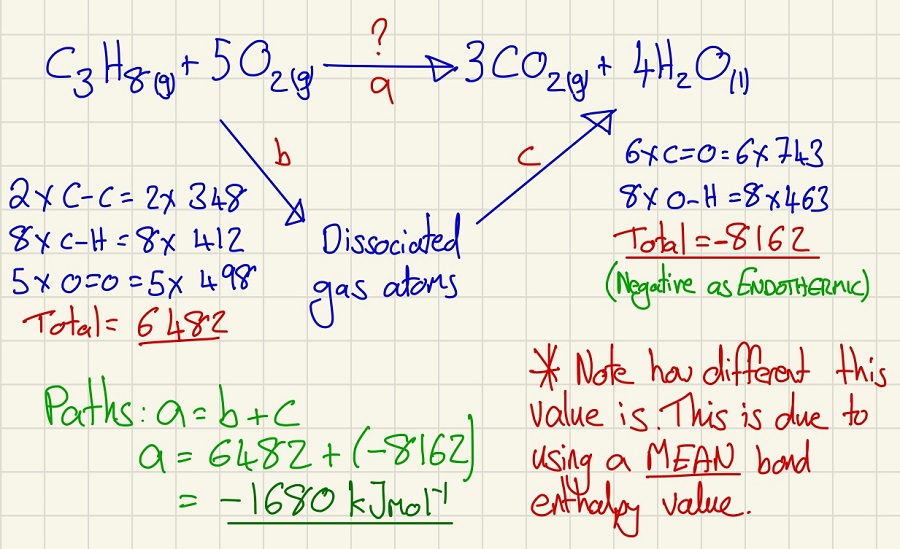 ?
C₃H₈(g) + 5O₂(g) → 3CO₂(g) + 4H₂O(l)
a
b
c
2 x C-C = 2x 348
8x C-H = 8x 412
5x O=O = 5x 498
Total = 6482
Dissociated
gas atoms
6xC=O = 6x743
8x O-H = 8x463
Total = -8162
(Negative as ENDOTHERMIC)
Paths: a = b + c
a = 6482 + (-8162)
= -1680 kJmol⁻¹
* Note how different this
value is. This is due to
using a MEAN bond
enthalpy value.